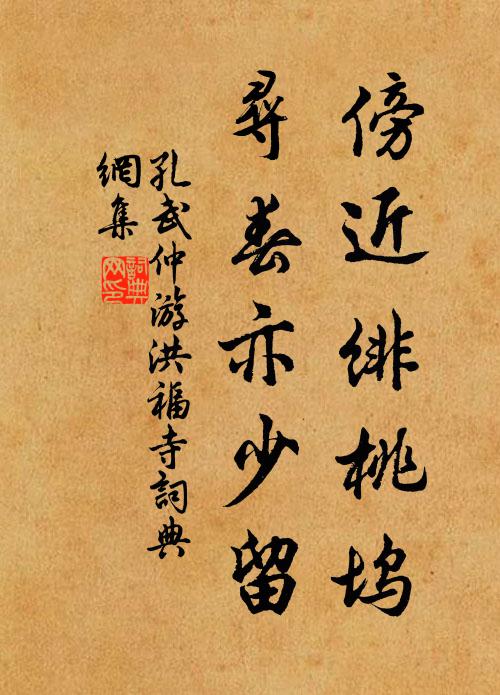 傍近緋桃塢
尋春亦少留
孔武仲游洪福寺詞典
網集
詞典网印